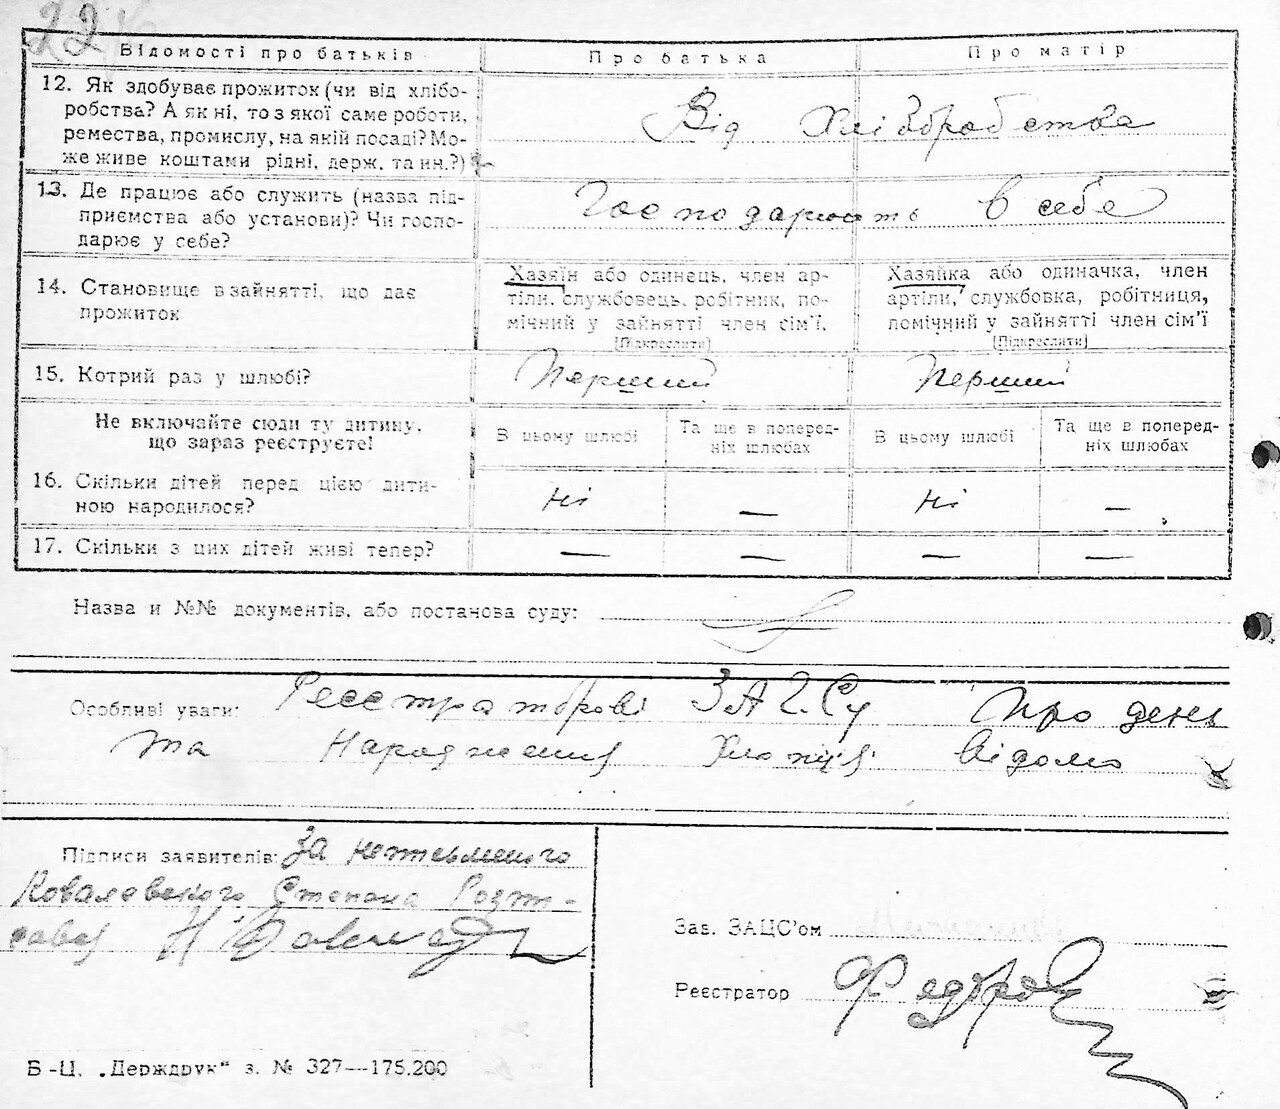 22
Відомості про батьків
Про батька
Про матір
12. Як здобуває прожиток (чи від хлібо-
робства? А як ні, то з якої саме роботи,
ремества, промислу, на якій посаді? Мо-
же живе коштами рідні, держ. та ин.?)
Від Хліборобства
13. Де працює або служить (назва під-
приємства або установи)? Чи госпо-
дарює у себе?
Господарюють в себе
14. Становище в зайнятті, що дає
прожиток
Хазяїн або одинець, член ар-
тіли, службовець, робітник, по-
мічний у зайнятті член сім'ї.
(Підкреслити)
Хазяйка або одиначка, член
артіли, службовка, робітниця,
помічний у зайнятті член сім'ї
(Підкреслити)
15. Котрий раз у шлюбі?
Перший
Перший
Не включайте сюди ту дитину,
що зараз реєструєте!
В цьому шлюбі
Та ще в поперед-
ніх шлюбах
В цьому шлюбі
Та ще в поперед-
ніх шлюбах
16. Скільки дітей перед цією дити-
ною народилося?
Ні
—
Ні
—
17. Скільки з цих дітей живі тепер?
—
—
—
—
Назва и №№ документів, або постанова суду:
Особливі уваги: Реєстраторові ЗАГСу Про день
та Народження Хлопця відомо
Підписи заявителів: За неписьменого
Ковалевського Степана Розпи-
сався
Зав. ЗАЦС'ом
Реєстратор
Б-Ц. „Держдрук“ з. № 327—175.200